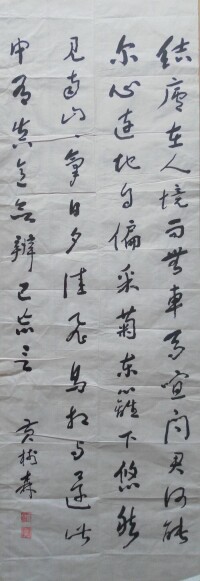 結廬在人境而無車馬喧問君何能
尔心遠地自偏采菊東籬下悠然
見南山々氣日夕佳飛鳥相與還此
中有真意欲辨已忘言
黄樹森